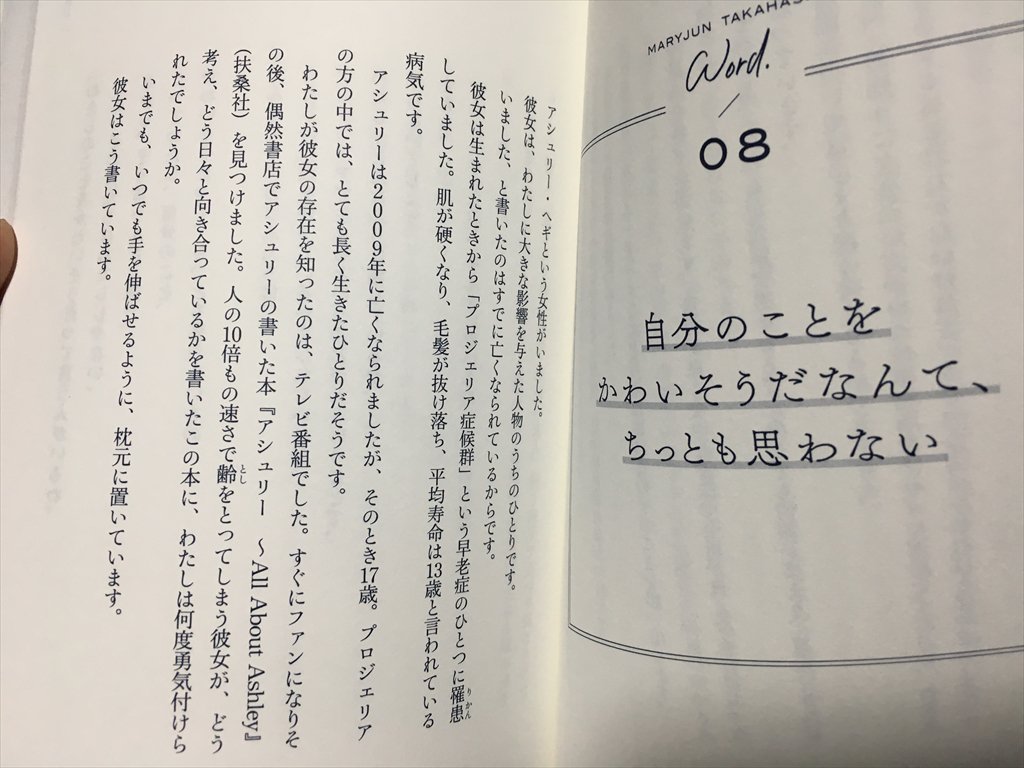 MARYJUN TAKAHAS
Word.
08
自分のことを
かわいそうだなんて、
ちっとも思わない
アシュリー・ヘギという女性がいました。
彼女は、わたしに大きな影響を与えた人物のうちのひとりです。
いました、と書いたのはすでに亡くなられているからです。
彼女は生まれたときから「プロジェリア症候群」という早老症のひとつに罹患
りかん
していました。肌が硬くなり、毛髪が抜け落ち、平均寿命は13歳と言われている
病気です。
アシュリーは2009年に亡くなられましたが、そのとき17歳。プロジェリア
の方の中では、とても長く生きたひとりだそうです。
わたしが彼女の存在を知ったのは、テレビ番組でした。すぐにファンになりそ
の後、偶然書店でアシュリーの書いた本『アシュリー ～All About Ashley』
（扶桑社）を見つけました。人の10倍もの速さで齢をとってしまう彼女が、どう
とし
考え、どう日々と向き合っているかを書いたこの本に、わたしは何度勇気付けら
れたでしょうか。
いまでも、いつでも手を伸ばせるように、枕元に置いています。
彼女はこう書いています。